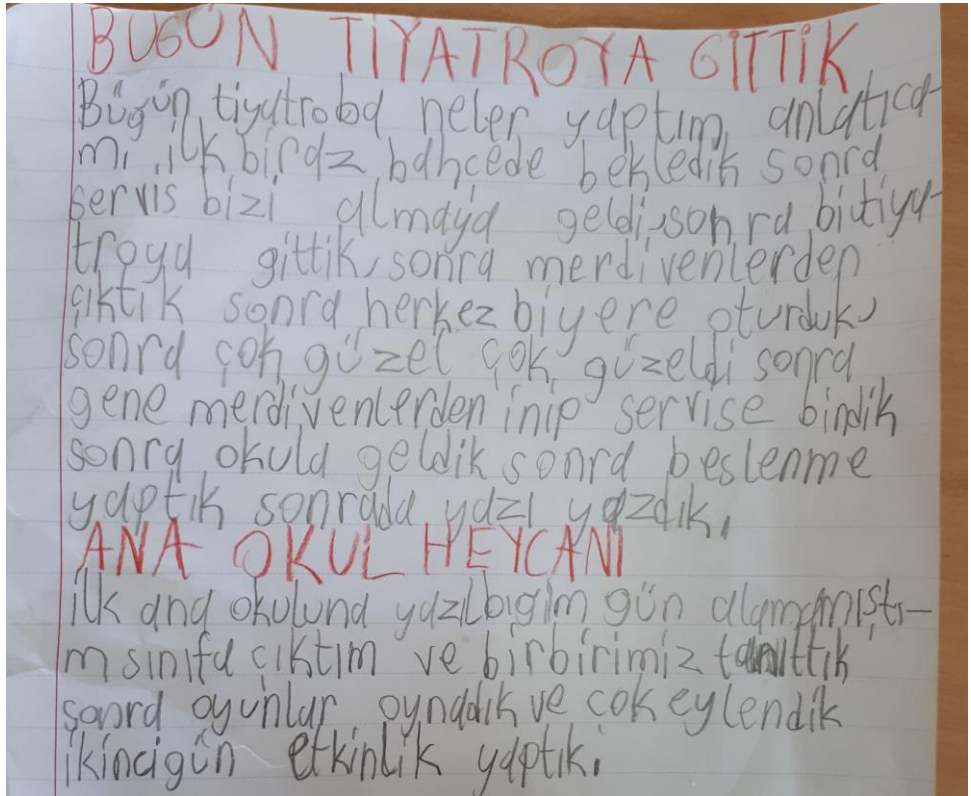 BUGÜN TİYATROYA GİTTİK
Bügün tiyatroba neler yaptım anlatıca-
mı ilk biraz bahcede bekledik sonra
servis bizi almaya geldi, sonra bitiya-
troya gittik, sonra merdivenlerden
çıktık sonra herkez biyere oturduk,
sonra çok güzel çok güzeldi sonra
gene merdivenlerden inip servise bindik
sonra okula geldik sonra beslenme
yaptık sonrada yazı yazdık.
ANA OKUL HEYCANI
ilk ana okuluna yazılbıgim gün alamamıştı-
m sınıfa çıktım ve birbirimiz tanıttık
sonra oyunlar oynadık ve çok eylendik
ikincigün etkinlik yaptık.